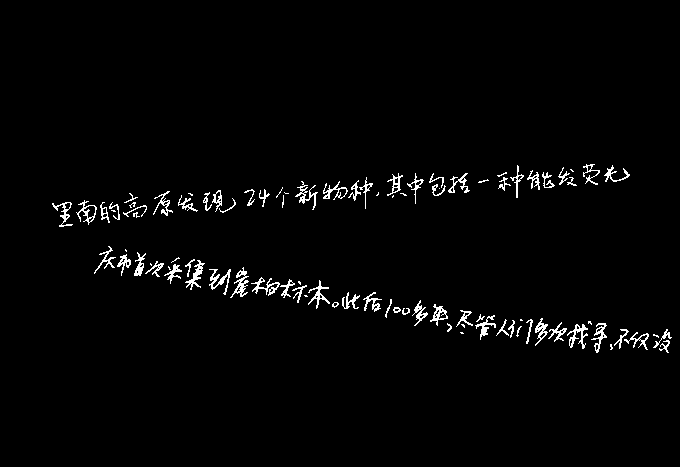 里南的高原发现24个新物种,其中包括一种能发荧光
庆市首次采集到崖柏标本。此后100多年,尽管人们多次找寻,不仅没